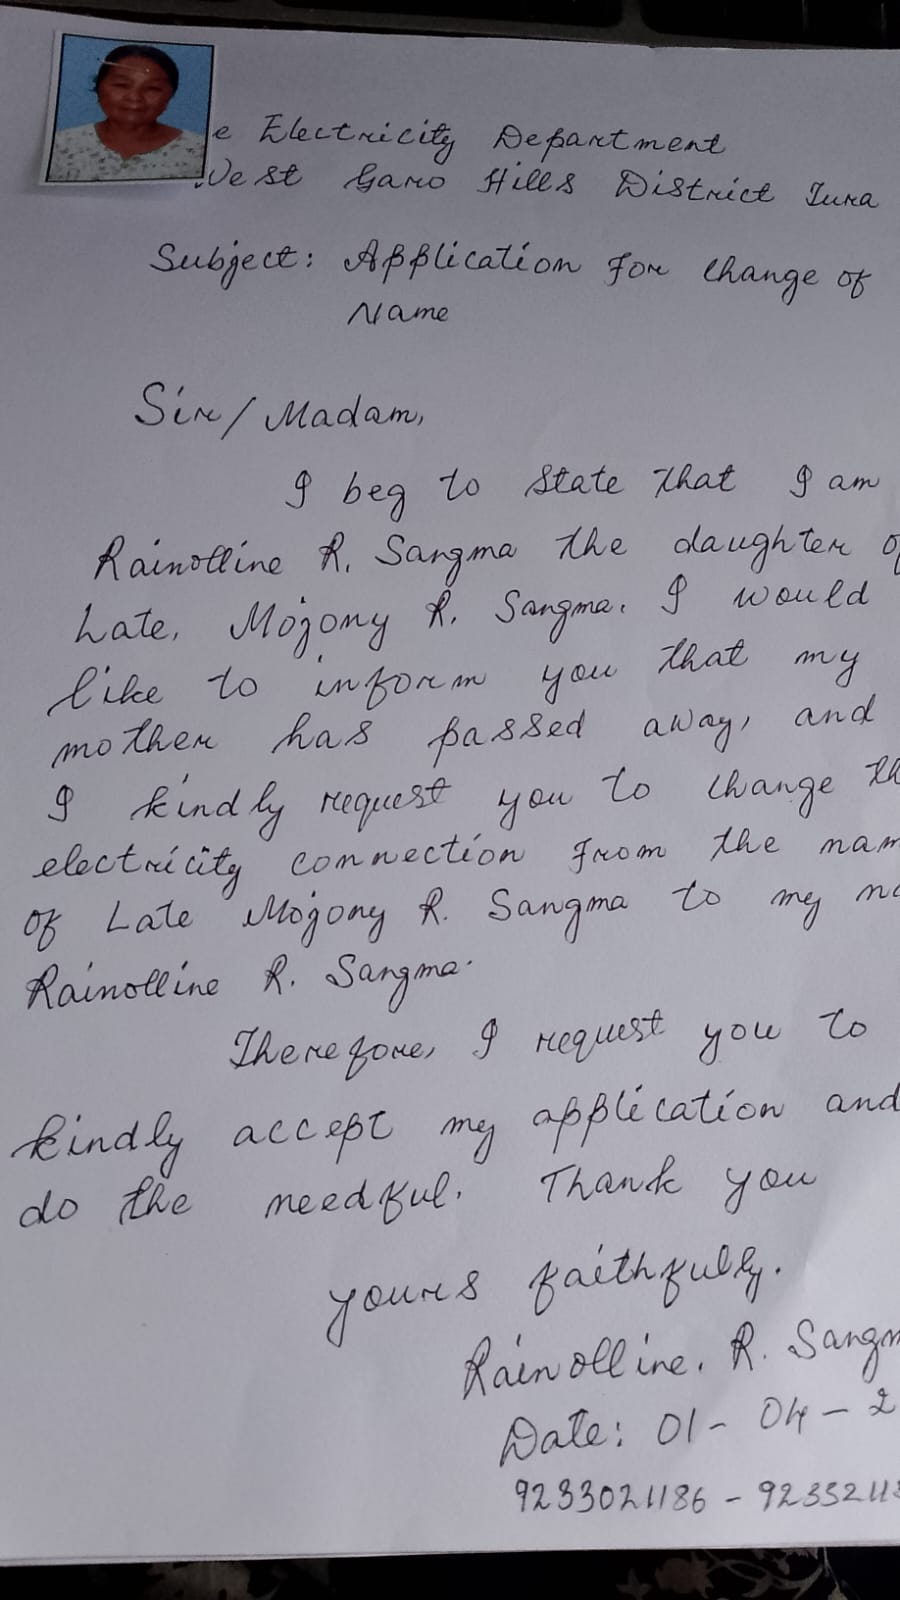 e Electricity Department
West Garo Hills District Tura
Subject: Application for change of
Name
Sir/Madam,
I beg to state that I am
Rainolline R. Sangma the daughter of
Late, Mojony R. Sangma. I would
like to inform you that my
mother has passed away, and
I kindly request you to change th
electricity connection from the nam
of Late Mojony R. Sangma to my na
Rainolline R. Sangma.
Therefore, I request you to
kindly accept my application and
do the needful. Thank you
yours faithfully.
Rainolline. R. Sangm
Date: 01-04-2
9233021186 - 9233211